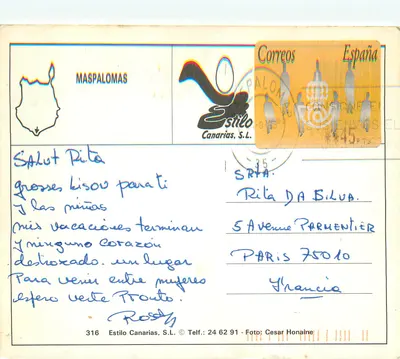 MASPALOMAS
Estilo
Canarias, S.L.
Correos España
Salut Rita
grosses bisou para ti
y las niñas
mis vacaciones terminan
y ninguno corazón
destrozado. un lugar
Para venir entre mujeres
espero verte Pronto.
SRTA.
Rita DA SILVA.
5 Avenue PARMENTIER
PARIS 75010
Francia
316 Estilo Canarias, S.L. © Telf.: 24 62 91 - Foto: Cesar Honalne